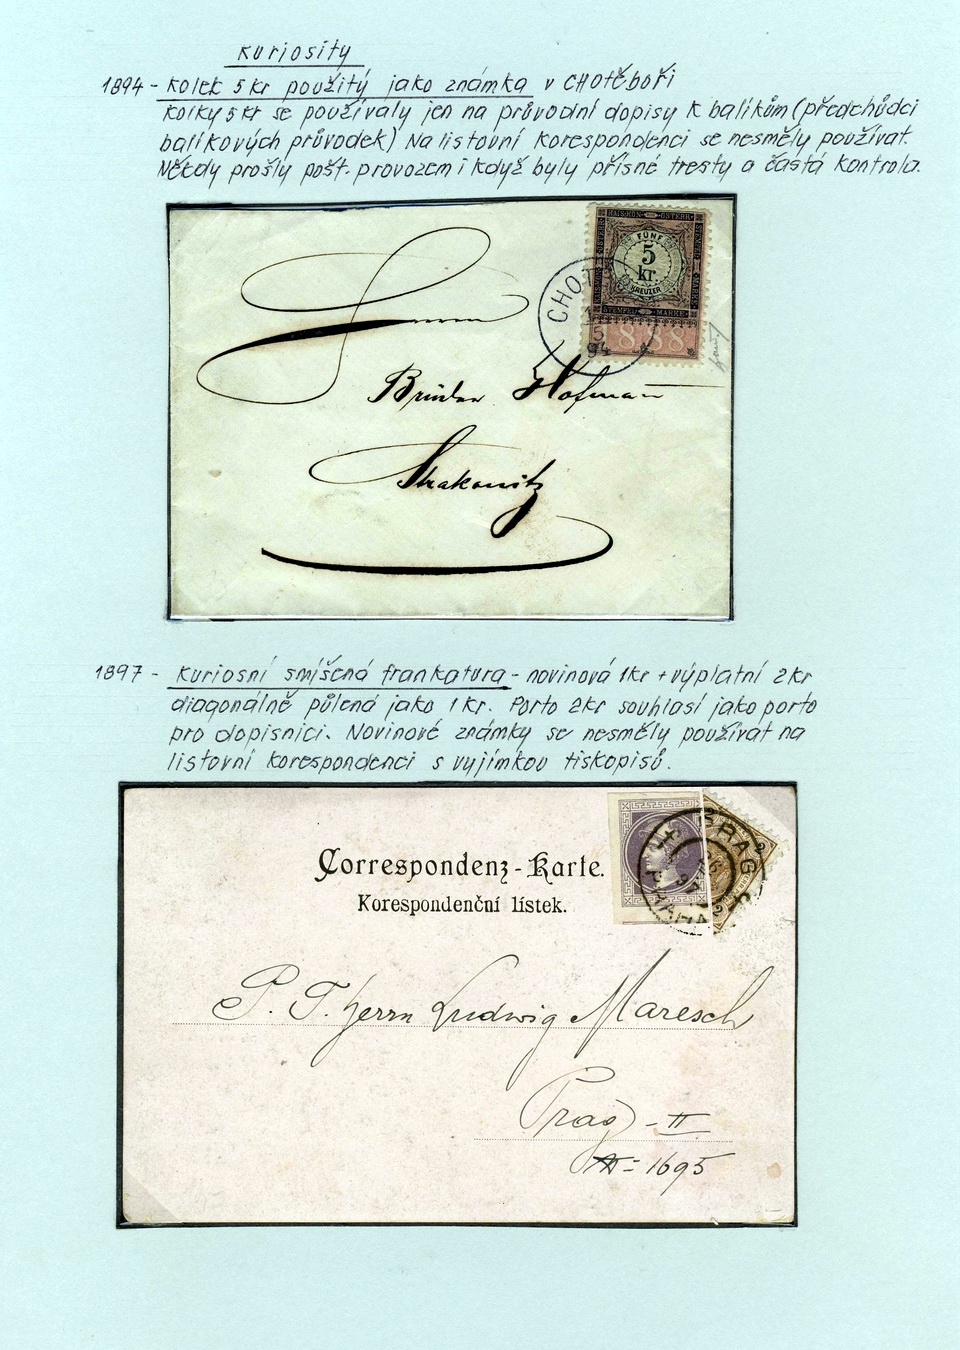 Kuriosity
1894 - Kolek 5 kr použitý jako známka v CHOTĚBOŘI
Kolky 5 kr se používaly jen na průvodní dopisy k balíkům (předchůdci
balíkových průvodek) Na listovní korespondenci se nesměly používat.
Někdy prošly pošt. provozem i když byly přísné tresty a častá kontrola.
KAIS·KÖN·ÖSTERR·
FÜNF
5
kr.
KREUZER
STEMPEL MARKE
1888
CHOT
5
94
Herrn
Brüder Hofmann
Strakonitz
1897 - Kuriosní smíšená frankatura - novinová 1kr + výplatní 2kr
diagonálně půlená jako 1 kr. Porto 2kr souhlasí jako porto
pro dopisnici. Novinové známky se nesměly používat na
listovní korespondenci s vyjímkou tiskopisů.
PRAG
2
2
PRAHA
Correspondenz-Karte.
Korespondenční lístek.
P. T. Herrn Ludwig Maresch
Prag - II
N = 1695